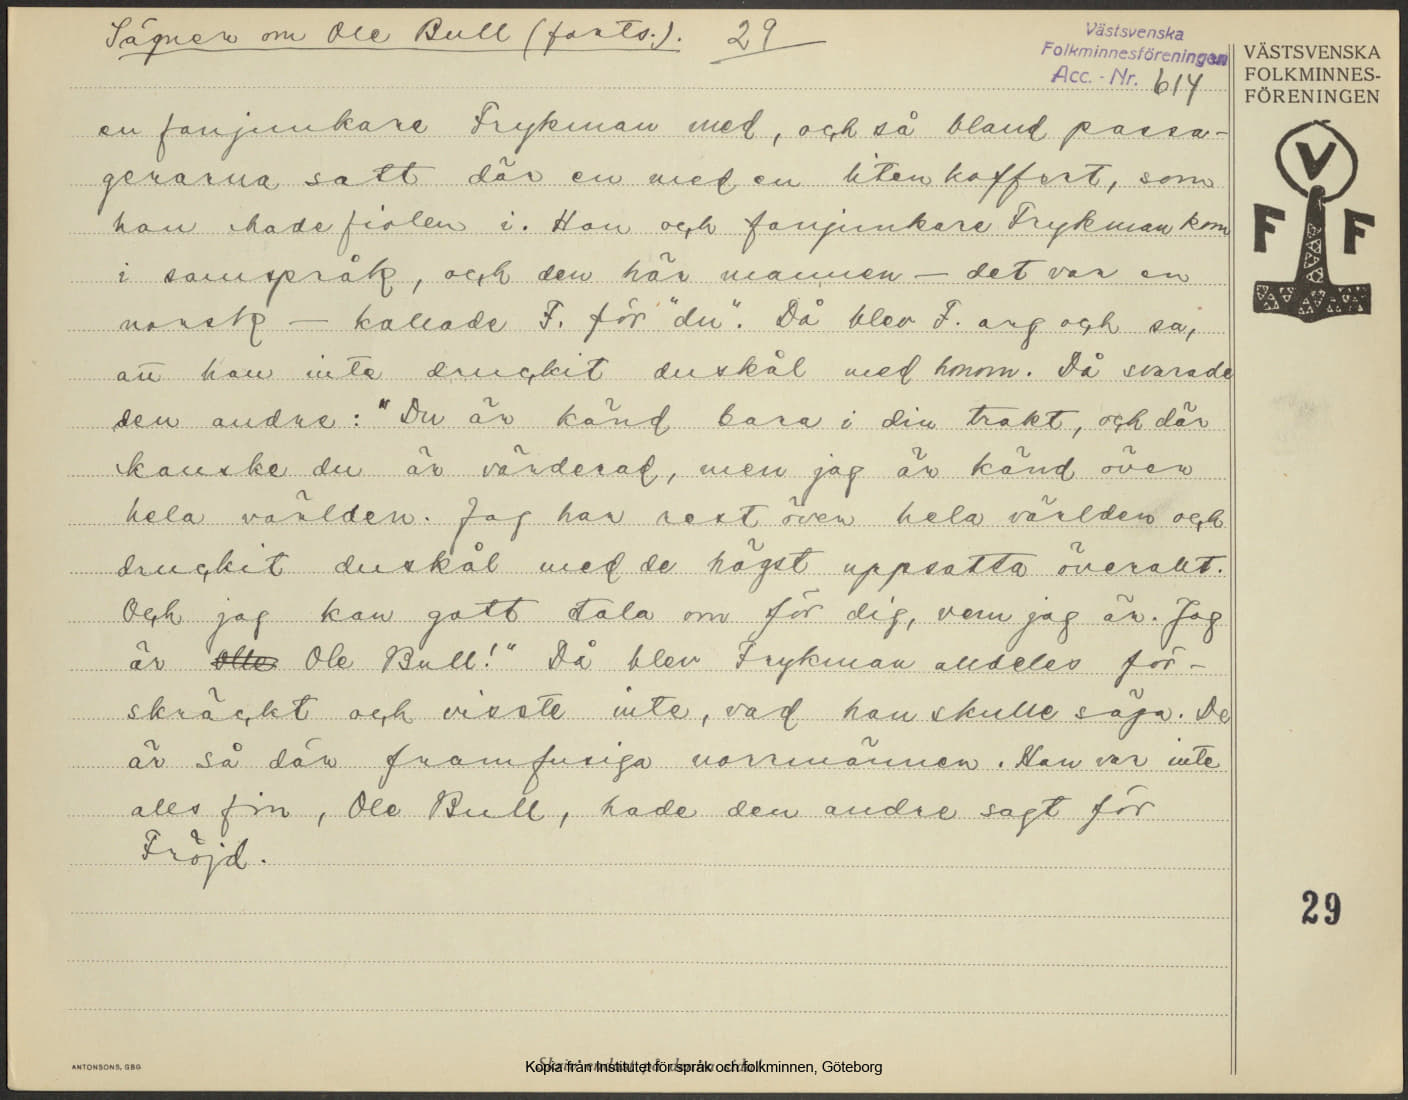 Sägner om Ole Bull (forts.). 29
Västsvenska
Folkminnesföreningen
Acc. - Nr. 614
VÄSTSVENSKA
FOLKMINNES-
FÖRENINGEN
V
F F
en fanjunkare Frykman med, och så bland passa-
gerarna satt där en med en liten koffert, som
han hade fiolen i. Han och fanjunkare Frykman kom
i samspråk, och den här mannen – det var en
norsk – kallade F. för "du". Då blev F. arg och sa,
att han inte druckit duskål med honom. Då svarade
den andre: "Du är känd bara i din trakt, och där
kanske du är värderad, men jag är känd över
hela världen. Jag har rest över hela världen och
druckit duskål med de högst uppsatta överallt.
Och jag kan gott tala om för dig, vem jag är. Jag
är Olle Ole Bull!" Då blev Frykman alldeles för-
skräckt och visste inte, vad han skulle säga. De
är så där framfusiga norrmännen. Han var inte
alls fin, Ole Bull, hade den andre sagt för
Fröjd.
29
ANTONSONS, GBG
Kopia från Institutet för språk och folkminnen, Göteborg